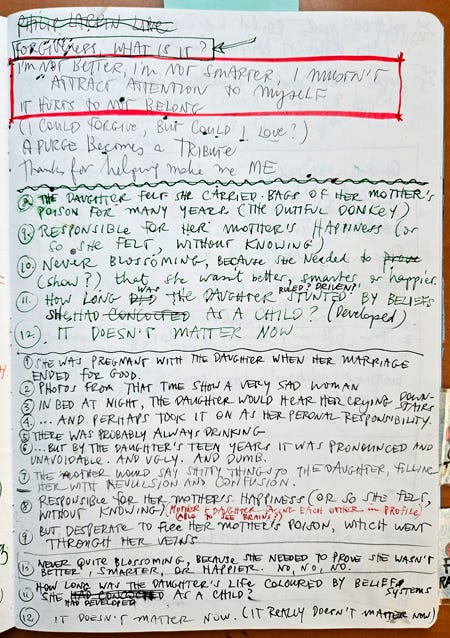 PHILIP LARKIN LIKE
FORGIVENESS, WHAT IS IT?
I'M NOT BETTER, I'M NOT SMARTER, I MUSTN'T
ATTRACT ATTENTION TO MYSELF
IT HURTS TO NOT BELONG
(I COULD FORGIVE, BUT COULD I LOVE?)
A PURGE BECOMES A TRIBUTE
Thanks for helping make me ME
8. THE DAUGHTER FELT SHE CARRIED BAGS OF HER MOTHER'S
POISON FOR MANY YEARS (THE DUTIFUL DONKEY)
9. RESPONSIBLE FOR HER MOTHER'S HAPPINESS (OR
SO SHE FELT, WITHOUT KNOWING)
10. NEVER BLOSSOMING, BECAUSE SHE NEEDED TO prove
(show?) that she wasn't better, smarter or happier.
11. HOW LONG DID WAS THE DAUGHTER STUNTED RULED? DRIVEN? BY BELIEFS
SHE HAD CONCOCTED AS A CHILD? (Developed)
12. IT DOESN'T MATTER NOW
1 SHE WAS PREGNANT WITH THE DAUGHTER WHEN HER MARRIAGE
ENDED FOR GOOD.
2 PHOTOS FROM THAT TIME SHOW A VERY SAD WOMAN
3 IN BED AT NIGHT, THE DAUGHTER WOULD HEAR HER CRYING DOWN-
STAIRS
4 ...AND PERHAPS TOOK IT ON AS HER PERONAL RESPONSIBILITY.
5 THERE WAS PROBABLY ALWAYS DRINKING
6 ...BUT BY THE DAUGHTER'S TEEN YEARS IT WAS PRONOUNCED AND
UNAVOIDABLE. AND UGLY. AND DUMB.
7 THE MOTHER WOULD SAY SHITTY THINGS TO THE DAUGHTER, FILLING
HER WITH REVULSION AND CONFUSION.
8 RESPONSIBLE FOR HER MOTHER'S HAPPINESS (OR SO SHE FELT,
WITHOUT KNOWING) (MOTHER & DAUGHTER FACING EACH OTHER IN PROFILE
(ABLE TO SEE BRAINS?)
9 BUT DESPERATE TO FLEE HER MOTHER'S POISON, WHICH WENT
THROUGH HER VEINS
10 NEVER QUITE BLOSSOMING, BECAUSE SHE NEEDED TO PROVE SHE WASN'T
BETTER, SMARTER, HAPPIER. NO, NO, NO.
11 HOW LONG WAS THE DAUGHTER'S LIFE COLOURED BY BELIEF
SYSTEMS
SHE HAD CONCOCTED AS A CHILD?
HAD DEVELOPED
12 IT DOESN'T MATTER NOW. (IT REALLY DOESN'T MATTER NOW)